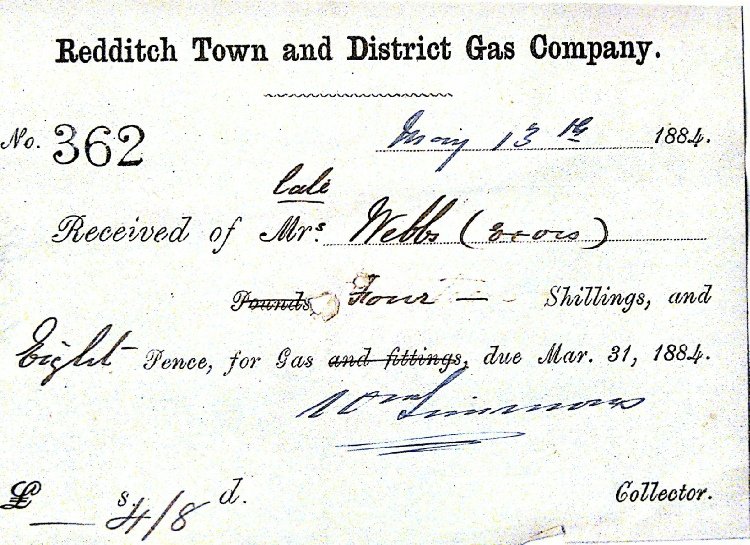 Redditch Town and District Gas Company.
No. 362 May 13th 1884.
late
Received of Mrs. Webbs (Exors)
Pounds Four — Shillings, and
Eight — Pence, for Gas and fittings, due Mar. 31, 1884.
Wm Simmons
£ — s. 4/8 d. Collector.